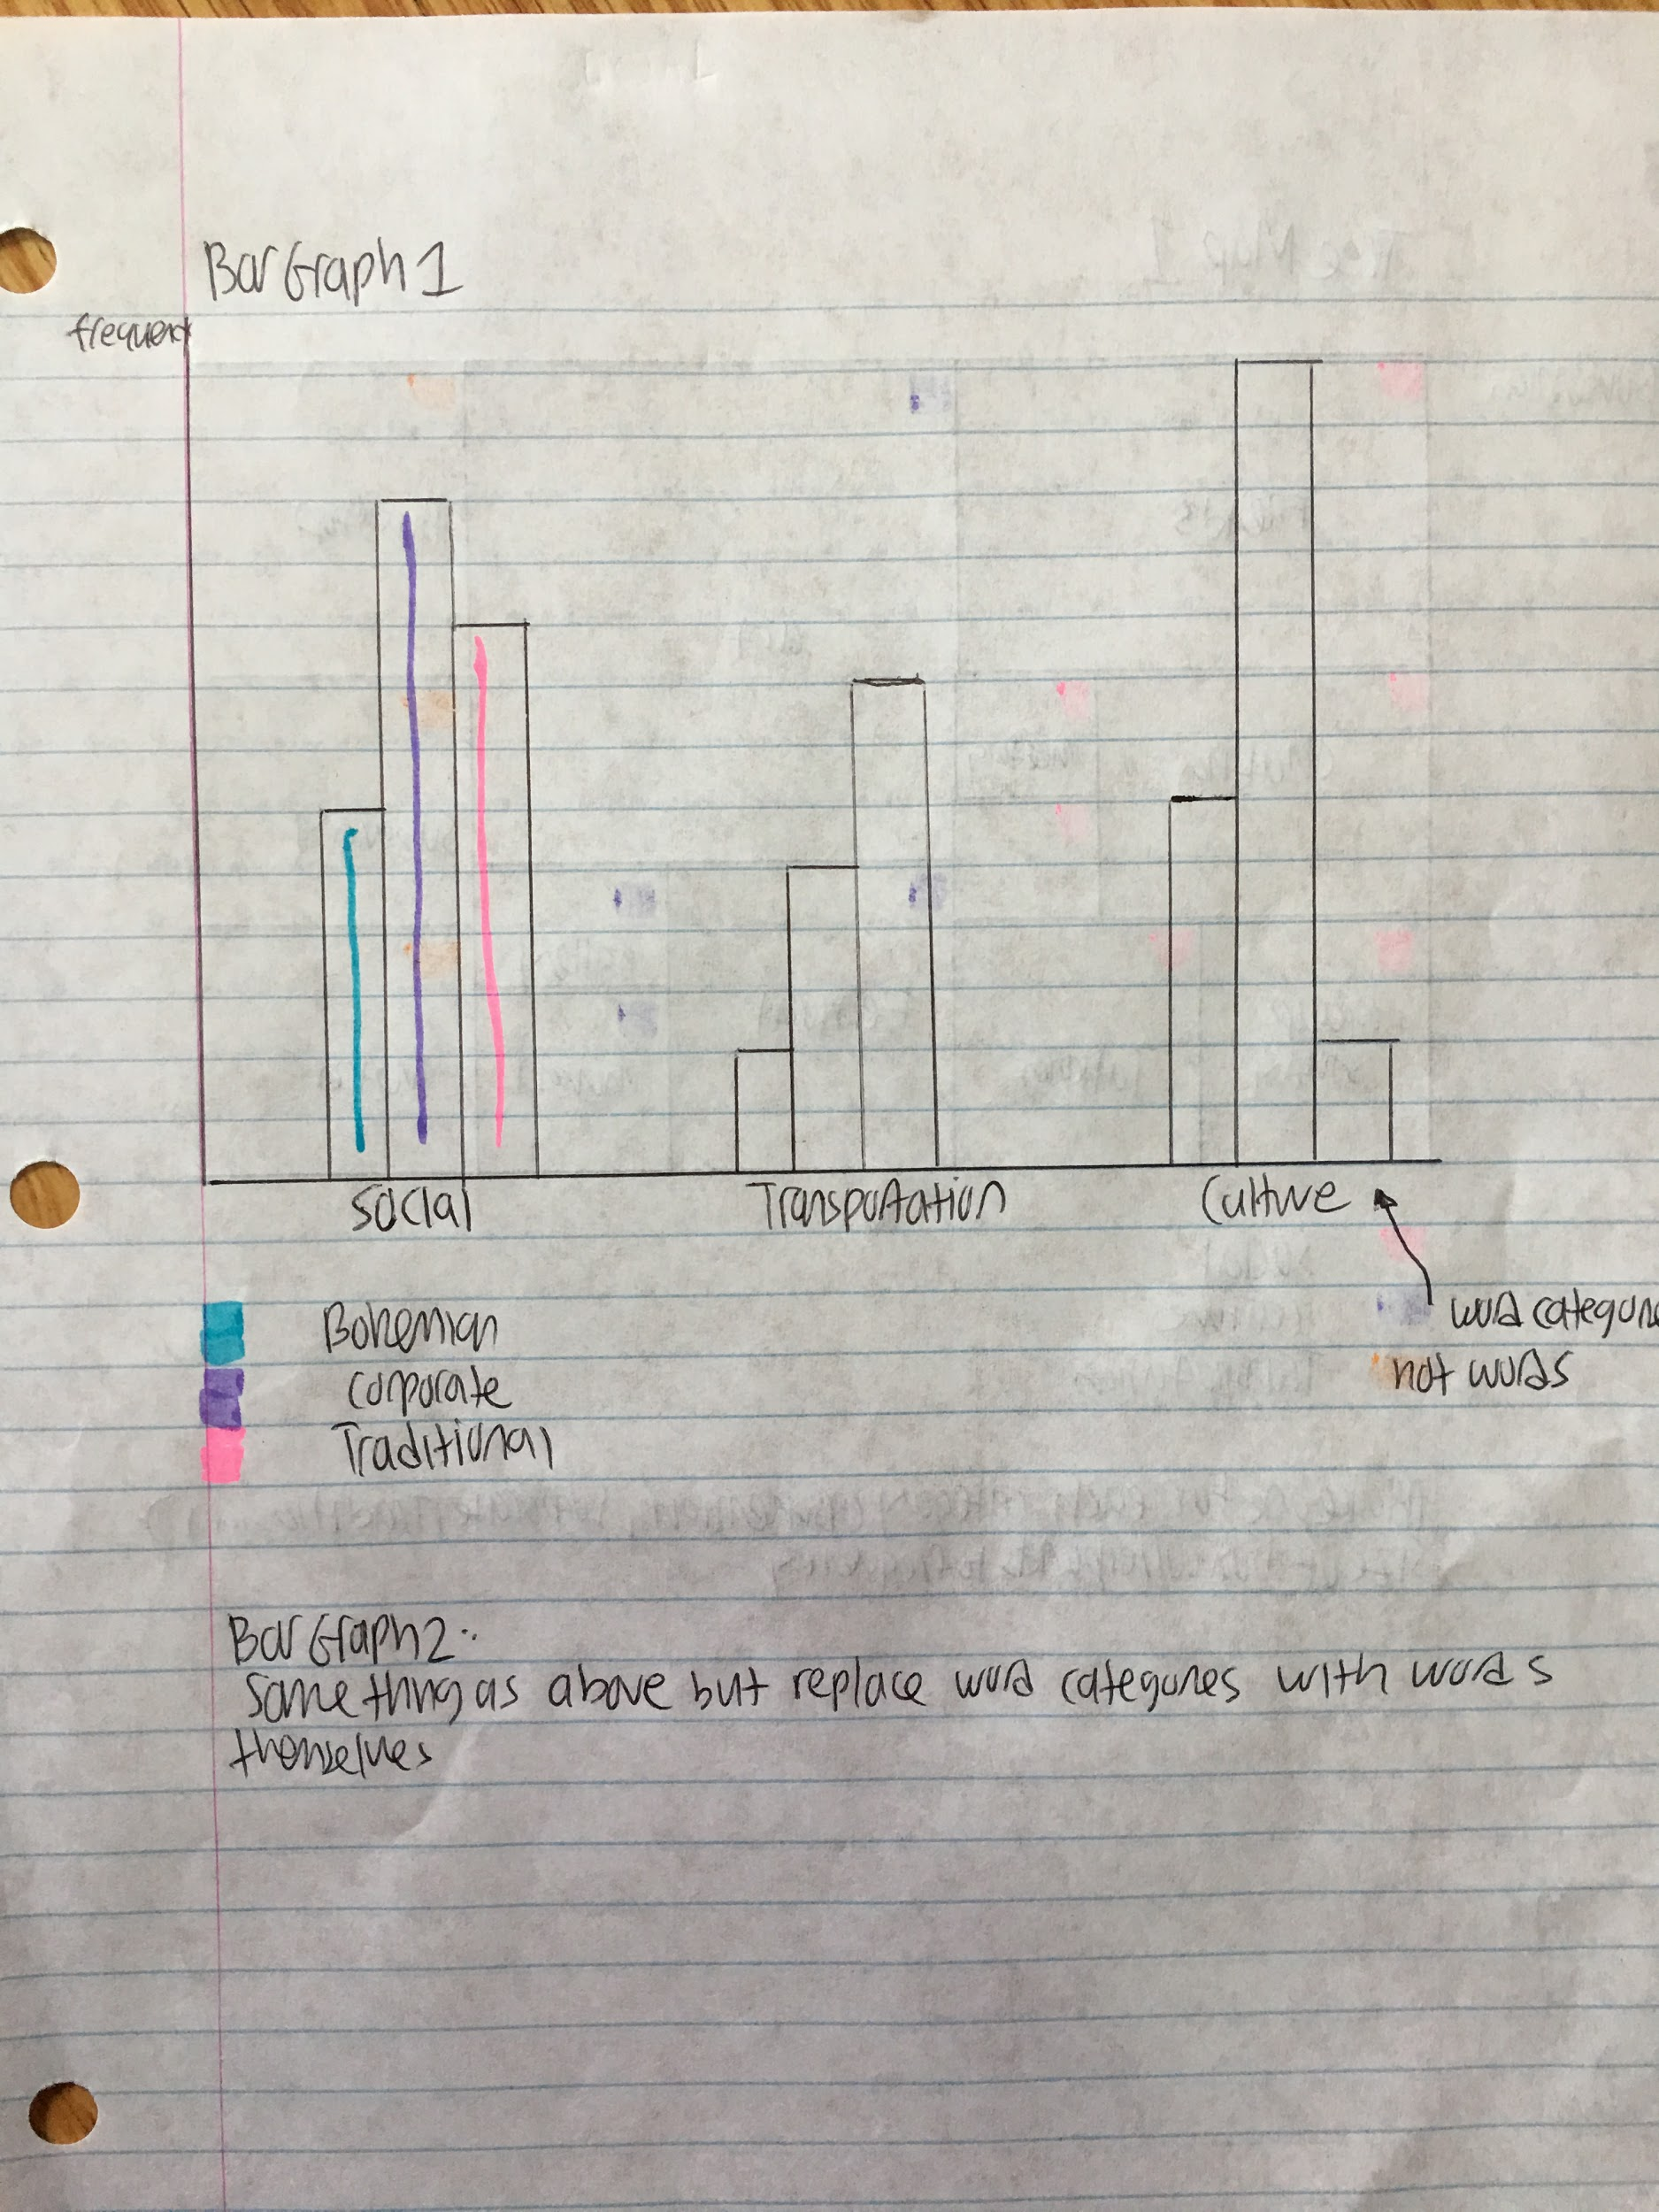 Bar Graph 1
frequency
Social Transportation Culture
Bohemian
word categories
corporate
not words
Traditional
Bar Graph 2:
Same thing as above but replace word categories with words
themselves